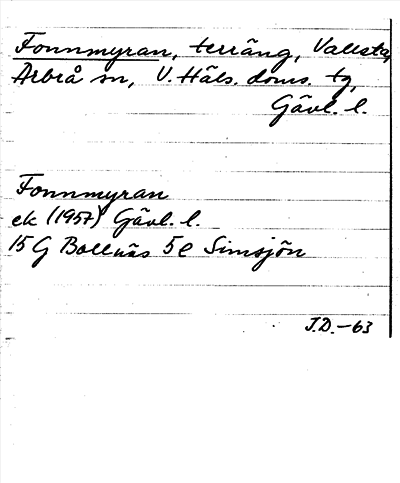 Fonnmyran, terräng, Vallsta,
Arbrå sn, V. Häls. doms. tg,
Gävl. l.
Fonnmyran
ek (1957) Gävl. l.
15 G Bollnäs 5 e Simsjön
J.D. -63